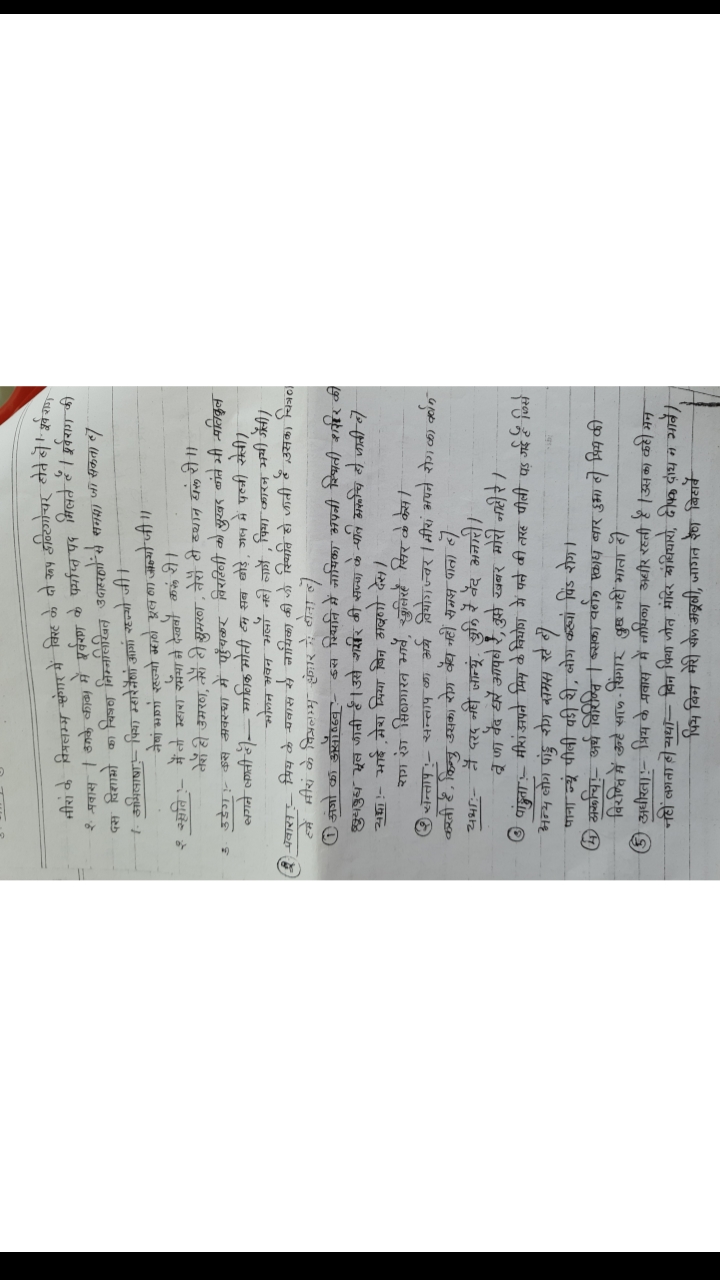 मीरां के विप्रलम्भ श्रृंगार में विरह के दो रूप दृष्टिगोचर होते है। पूर्वराग,
२. प्रवास। उनके काव्य में पूर्वराग के पर्याप्त पद मिलते हैं। पूर्वराग की
दस दिशाओं का चित्रण निम्नलिखित उदाहरणों से समझा जा सकता है।
१. अभिलाषा:— पिया म्हारे नैणां आगां रहज्यो जी।
नैणां आगां रहज्यो म्हाने भूल मत जाज्यो जी॥
२. स्मृति:— में तो म्हारा रमैया ने देखवो करूं री।
तेरो ही उमरण, तेरो ही सुमरण, तेरो ही ध्यान धरूं री॥
३. उद्वेग:— इस अवस्था में पहुँचकर विरहिणी को सुखद बातें भी प्रतिकूल
लगने लगती है।— माणिक मोती हम सब छोड़े, गल में पहनी सेली।
भोजन भवन भलो नहीं लागे, पिया कारण भयी गेली।
② प्रवास:— प्रिय के प्रवास से नायिका की जो स्थिति हो जाती है उसका चित्रण
हमे मीरां के विप्रलम्भ श्रृंगार में होता है।
① अंगों का असौष्ठव:— इस स्थिति में नायिका अपनी स्थिति शरीर की
सुधबुध भूल जाती है। उसे शरीर की सज्जा के प्रति अरूचि हो जाती है।
यथा:— माई, म्हारा पिया बिन अलूणो देस।
राग रंग सिणगारन भावै, खुलरहै सिर के केस।
② सन्ताप:— सन्ताप का अर्थ वियोग-ज्वर। मीरां अपने रोग का वर्णन
करती है, किन्तु उसका रोग वैद्य नहीं समझ पाता है।
यथा:— तैं दरद नहीं जान्यूं, सुनि रे वैद अनारी।
तू जा वैद घरि आपणे रे, तुझे खबर मोरी नहीं रे।
③ पांडुता:— मीरां अपने प्रिय के वियोग में पत्ते की तरह पीली पड़ गई है जिसे
अन्य लोग पांडु रोग समझ रहे है।
पाना ज्यूं पीली पड़ी रे, लोग कह्यां पिंड रोग।
④ अरूचि:— अर्थ विरक्ति। इसका वर्णन कई बार हुआ है। प्रिय की
विरक्ति में उन्हें साज-सिंगार कुछ नहीं भाता है।
⑤ अधीरता:— प्रिय के प्रवास में नायिका अधीर रहती है। उसका कहीं मन
नहीं लगता है। यथा:— बिन पिया जोत मंदिर अंधियारो, दीपक दाय न आवे।
पिय बिन मेरी सेज अलूणी, जागत रैण बिहावै